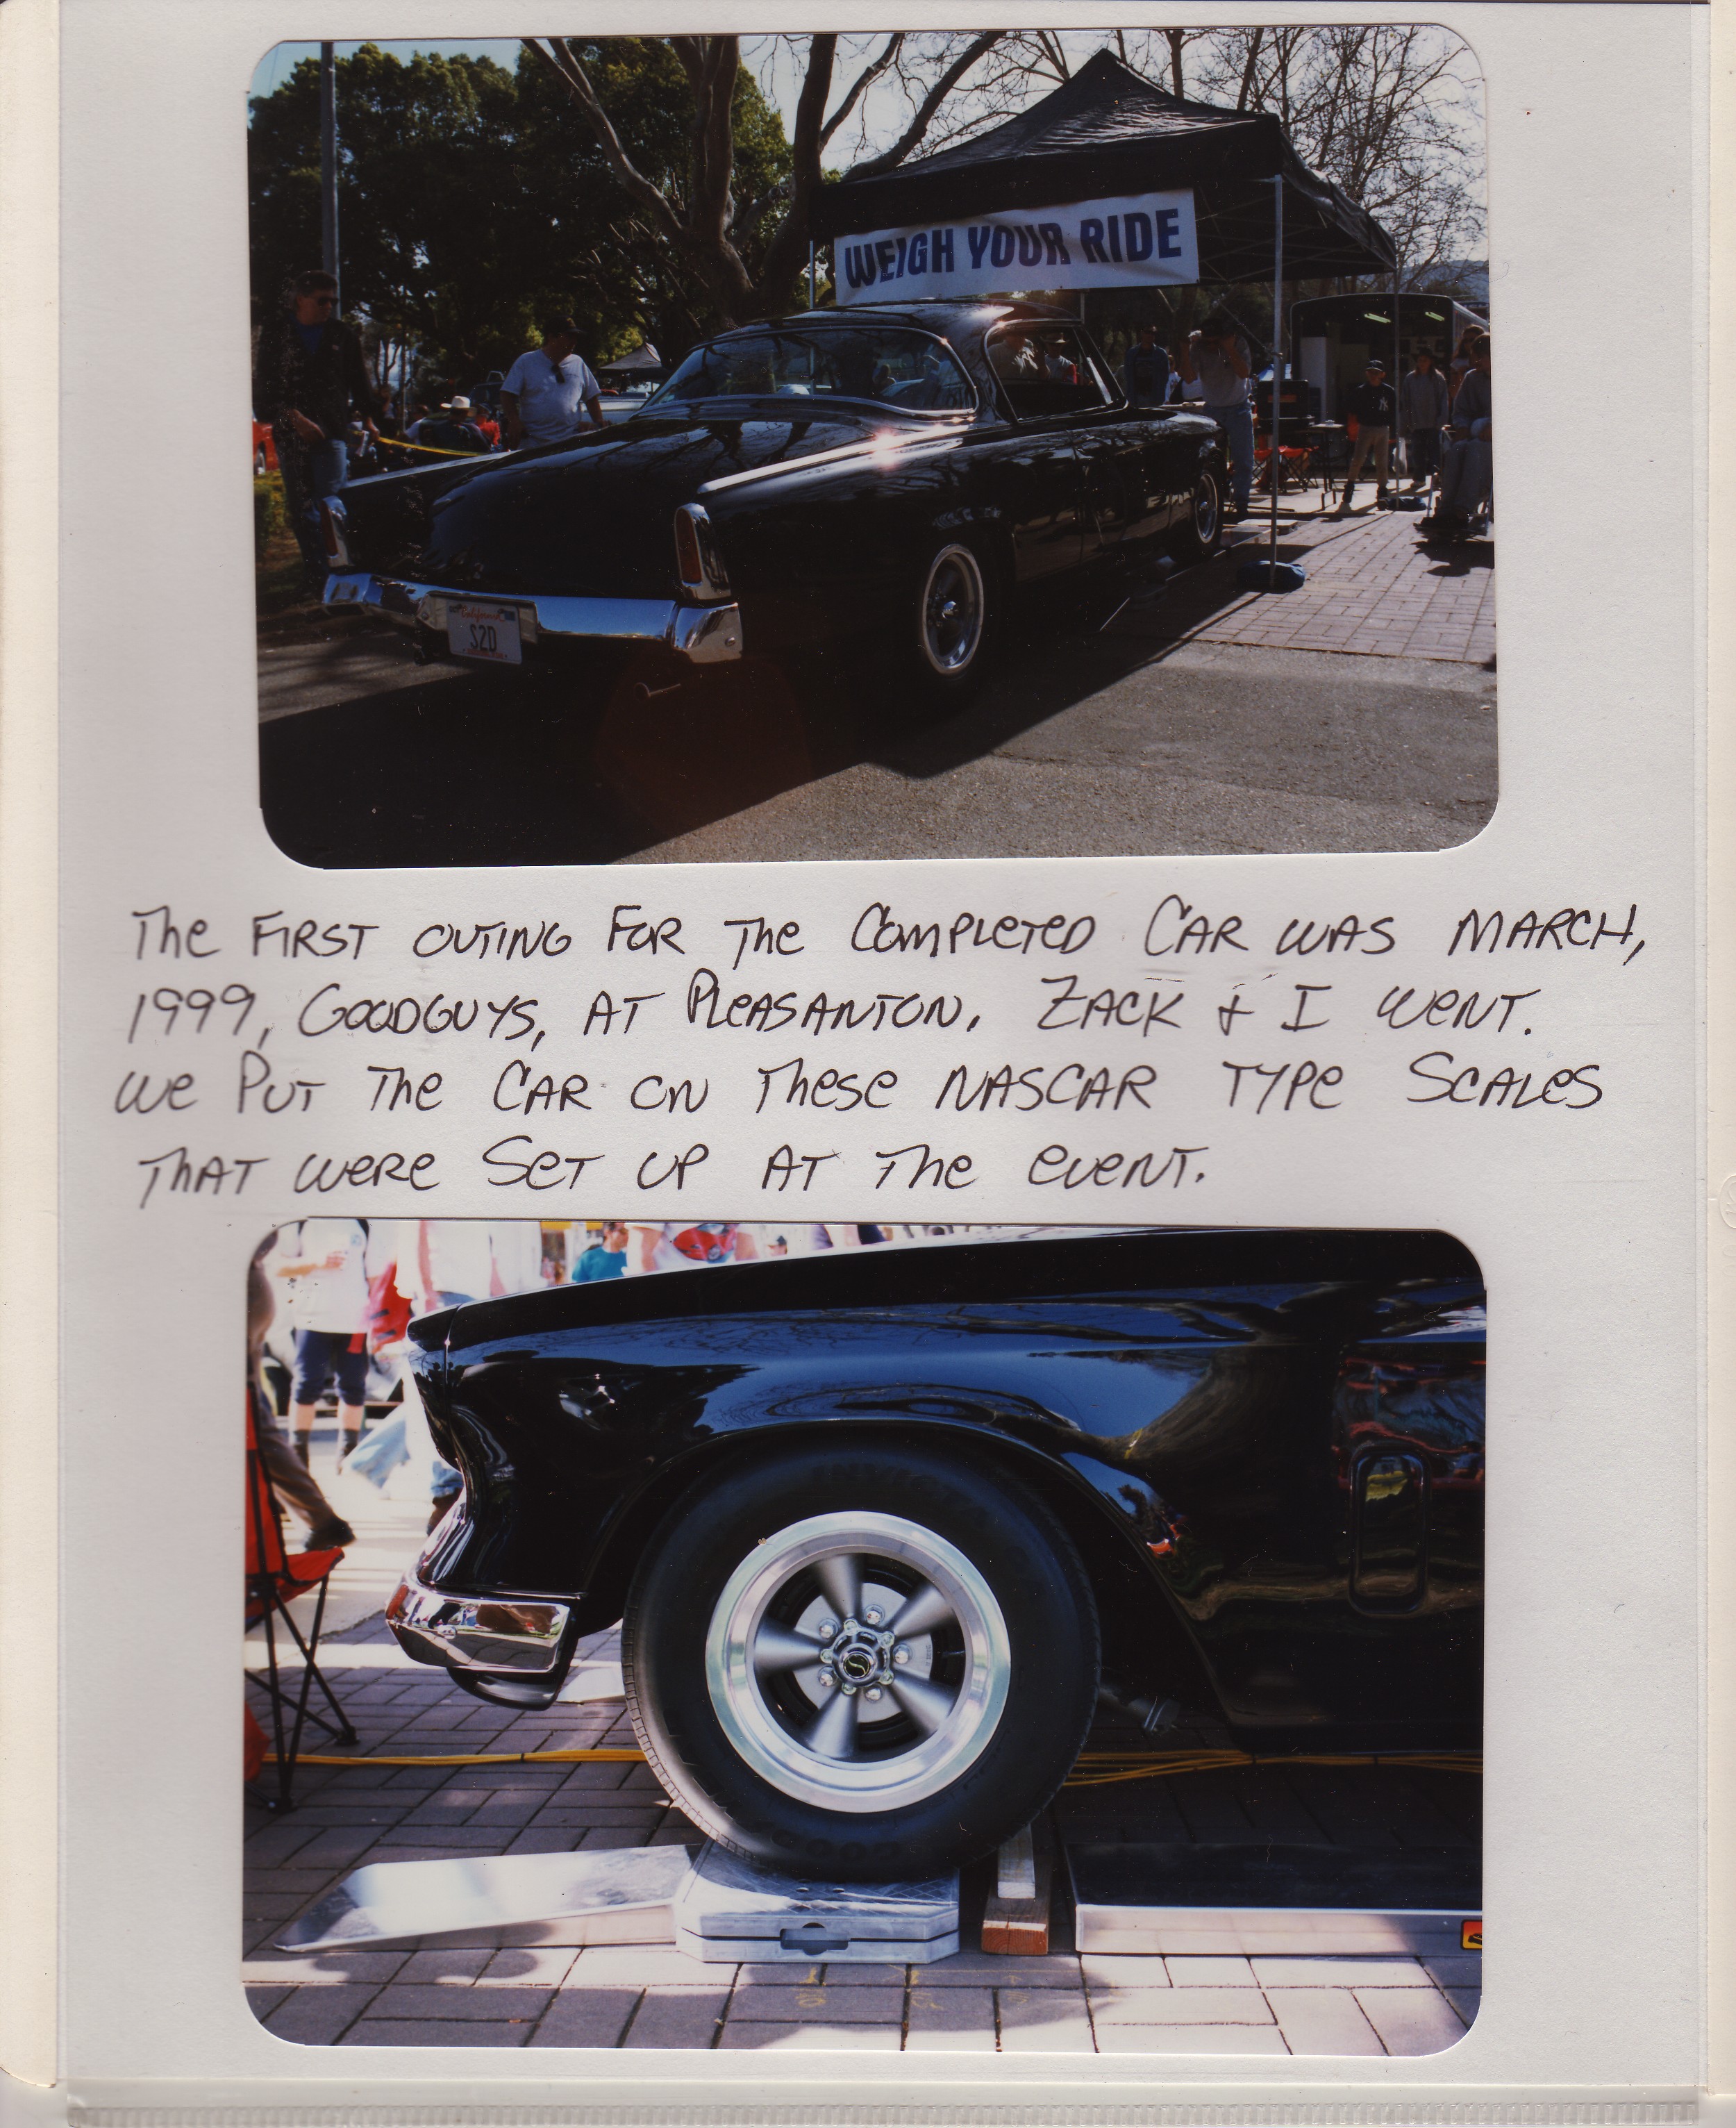 WEIGH YOUR RIDE
California
S2D
The FIRST OUTING FOR The COMPLETED CAR WAS MARCH,
1999, GOODGUYS, AT PLEASANTON, ZACK & I WENT.
We PUT The CAR ON These NASCAR TYPE SCALES
THAT WERE SET UP AT The EVENT.